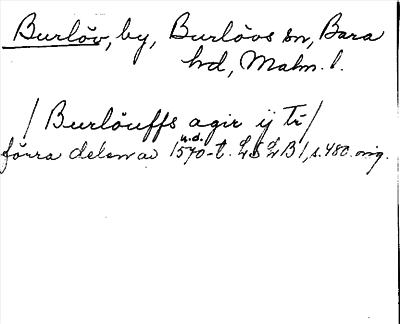 Burlöv, by, Burlövs sn, Bara
hd, Malm. l.
/Burlöuffs agir ij Tr/
u.d.
förra delen av 1570-t. LSLB 1, s. 480. orig.